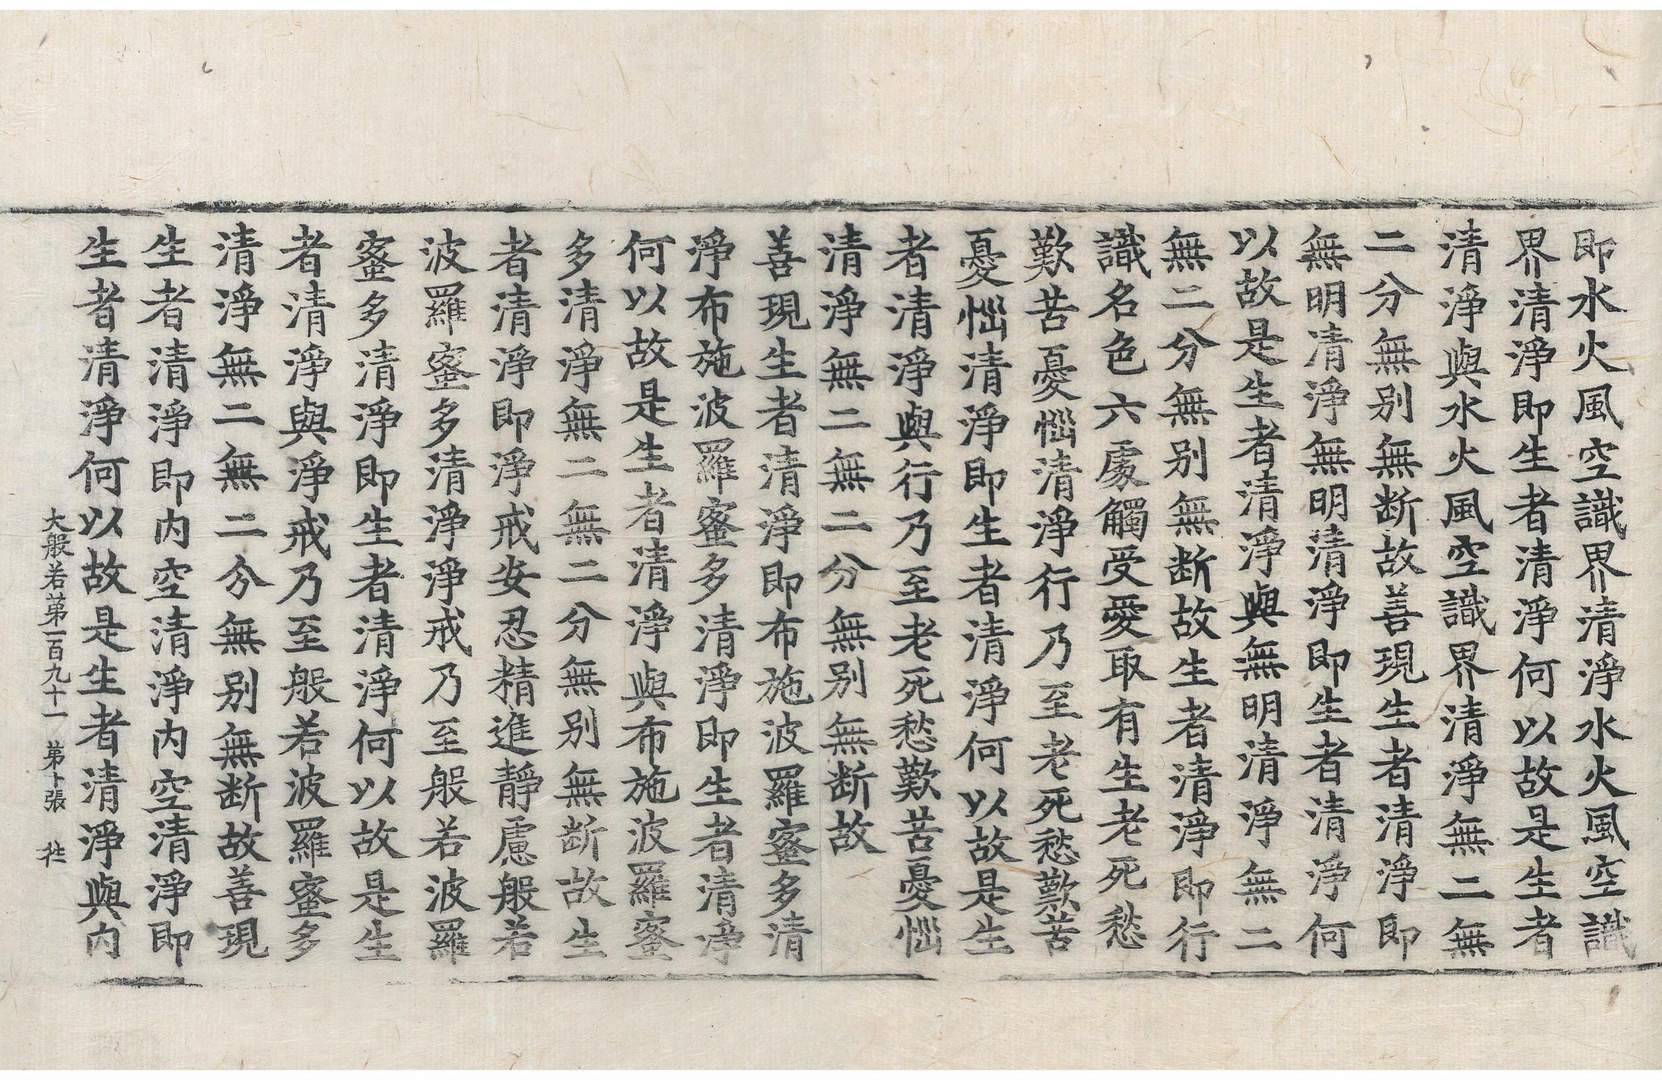 即水火風空識界清淨水火風空識
界清淨即生者清淨何以故是生者
清淨與水火風空識界清淨無二無
二分無别無断故善現生者清淨即
無明清淨無明清淨即生者清淨何
以故是生者清淨與無明清淨無二
無二分無别無断故生者清淨即行
識名色六處觸受愛取有生老死愁
歎苦憂惱清淨行乃至老死愁歎苦
憂惱清淨即生者清淨何以故是生
者清淨與行乃至老死愁歎苦憂惱
清淨無二無二分無别無断故
善現生者清淨即布施波羅蜜多清
淨布施波羅蜜多清淨即生者清淨
何以故是生者清淨與布施波羅蜜
多清淨無二無二分無别無断故生
者清淨即淨戒安忍精進靜慮般若
波羅蜜多清淨淨戒乃至般若波羅
蜜多清淨即生者清淨何以故是生
者清淨與淨戒乃至般若波羅蜜多
清淨無二無二分無别無断故善現
生者清淨即内空清淨内空清淨即
生者清淨何以故是生者清淨與内
大般若第一百九十一 第十張 徃